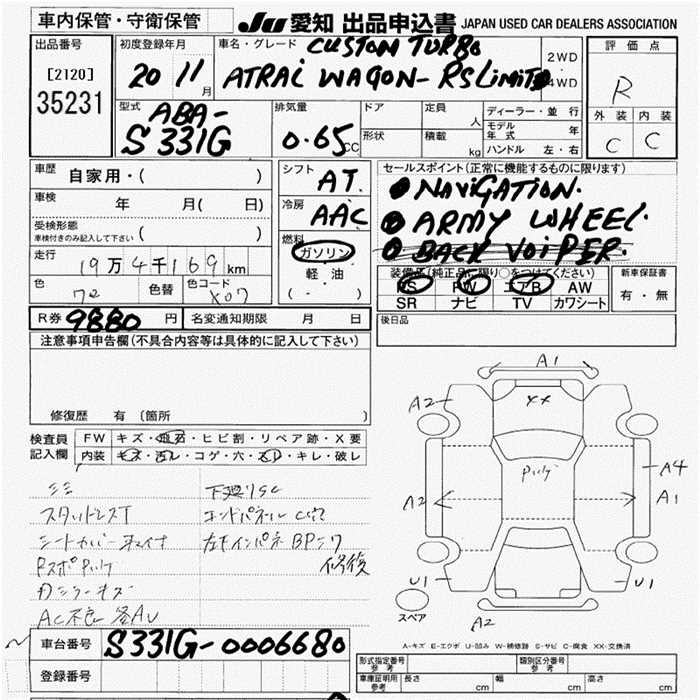 車内保管・守衛保管
JU 愛知 出品申込書 JAPAN USED CAR DEALERS ASSOCIATION
出品番号
[2120]
35231
初度登録年月
20 11月
車名・グレード
CUSTOM TURBO
ATRAI WAGON- RS LIMITED
2WD
・
4WD
評価点
R
外装 内装
C C
型式
ABA-
S331G
排気量
0.65 CC
ドア
定員
人
形状
積載
kg
ディーラー・並行
モデル年式
年
ハンドル 左・右
車歴
自家用・( )
車検
年 月( 日)
受検形態
車検付きのみ記入して下さい ( )
走行
19万4千169km
色
色替
色コード
X07
シフト
AT
冷房
AAC
燃料
ガソリン
軽油
( - )
セールスポイント(正常に機能するものに限ります)
● NAVIGATION.
● ARMY WHEEL.
● BACK VOIPER.
装備品(純正品に限り○をつけてください)
PS PW エアB AW
SR ナビ TV カワシート
新車保証書
有・無
R券 9880 円
名変通知期限 月 日
後日品
注意事項申告欄(不具合内容等は具体的に記入して下さい)
修復歴 有 (箇所 )
検査員
記入欄
FW キズ・飛石・ヒビ割・リペア跡・X要
内装 キズ・汚レ・コゲ・穴・スレ・キレ・破レ
下廻りSC
スタッドレスT
エンドパネル
シートカバー
修復
AC不良
A1
A2
XX
A2
A4
A1
A2
U1
U1
A2
スペア
A-キズ E-エクボ U-凹み W-補修跡 S-サビ C-腐食 XX-交換済
車台番号
S331G-0006680
登録番号
形式指定番号
参考
類別区分番号
参考
車庫証明用
参考
長さ cm
幅 cm
高さ cm